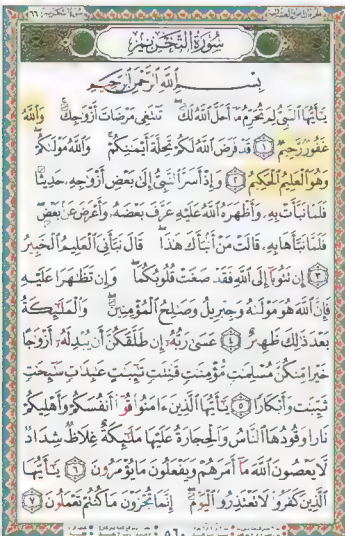 سُورَةُ التَّحْرِيمِ
بِسْمِ ٱللَّهِ ٱلرَّحْمَٰنِ ٱلرَّحِيمِ
يَٰٓأَيُّهَا ٱلنَّبِىُّ لِمَ تُحَرِّمُ مَآ أَحَلَّ ٱللَّهُ لَكَ تَبْتَغِى مَرْضَاتَ أَزْوَٰجِكَ وَٱللَّهُ
غَفُورٌ رَّحِيمٌ ١ قَدْ فَرَضَ ٱللَّهُ لَكُمْ تَحِلَّةَ أَيْمَٰنِكُمْ وَٱللَّهُ مَوْلَىٰكُمْ
وَهُوَ ٱلْعَلِيمُ ٱلْحَكِيمُ ٢ وَإِذْ أَسَرَّ ٱلنَّبِىُّ إِلَىٰ بَعْضِ أَزْوَٰجِهِۦ حَدِيثًا
فَلَمَّا نَبَّأَتْ بِهِۦ وَأَظْهَرَهُ ٱللَّهُ عَلَيْهِ عَرَّفَ بَعْضَهُۥ وَأَعْرَضَ عَنۢ بَعْضٍ
فَلَمَّا نَبَّأَهَا بِهِۦ قَالَتْ مَنْ أَنۢبَأَكَ هَٰذَا قَالَ نَبَّأَنِىَ ٱلْعَلِيمُ ٱلْخَبِيرُ
٣ إِن تَتُوبَآ إِلَى ٱللَّهِ فَقَدْ صَغَتْ قُلُوبُكُمَا وَإِن تَظَٰهَرَا عَلَيْهِ
فَإِنَّ ٱللَّهَ هُوَ مَوْلَىٰهُ وَجِبْرِيلُ وَصَٰلِحُ ٱلْمُؤْمِنِينَ وَٱلْمَلَٰٓئِكَةُ
بَعْدَ ذَٰلِكَ ظَهِيرٌ ٤ عَسَىٰ رَبُّهُۥٓ إِن طَلَّقَكُنَّ أَن يُبْدِلَهُۥٓ أَزْوَٰجًا
خَيْرًا مِّنكُنَّ مُسْلِمَٰتٍ مُّؤْمِنَٰتٍ قَٰنِتَٰتٍ تَٰٓئِبَٰتٍ عَٰبِدَٰتٍ سَٰٓئِحَٰتٍ
ثَيِّبَٰتٍ وَأَبْكَارًا ٥ يَٰٓأَيُّهَا ٱلَّذِينَ ءَامَنُوا۟ قُوٓا۟ أَنفُسَكُمْ وَأَهْلِيكُمْ
نَارًا وَقُودُهَا ٱلنَّاسُ وَٱلْحِجَارَةُ عَلَيْهَا مَلَٰٓئِكَةٌ غِلَاظٌ شِدَادٌ
لَّا يَعْصُونَ ٱللَّهَ مَآ أَمَرَهُمْ وَيَفْعَلُونَ مَا يُؤْمَرُونَ ٦ يَٰٓأَيُّهَا
ٱلَّذِينَ كَفَرُوا۟ لَا تَعْتَذِرُوا۟ ٱلْيَوْمَ إِنَّمَا تُجْزَوْنَ مَا كُنتُمْ تَعْمَلُونَ ٧
٥٦٠